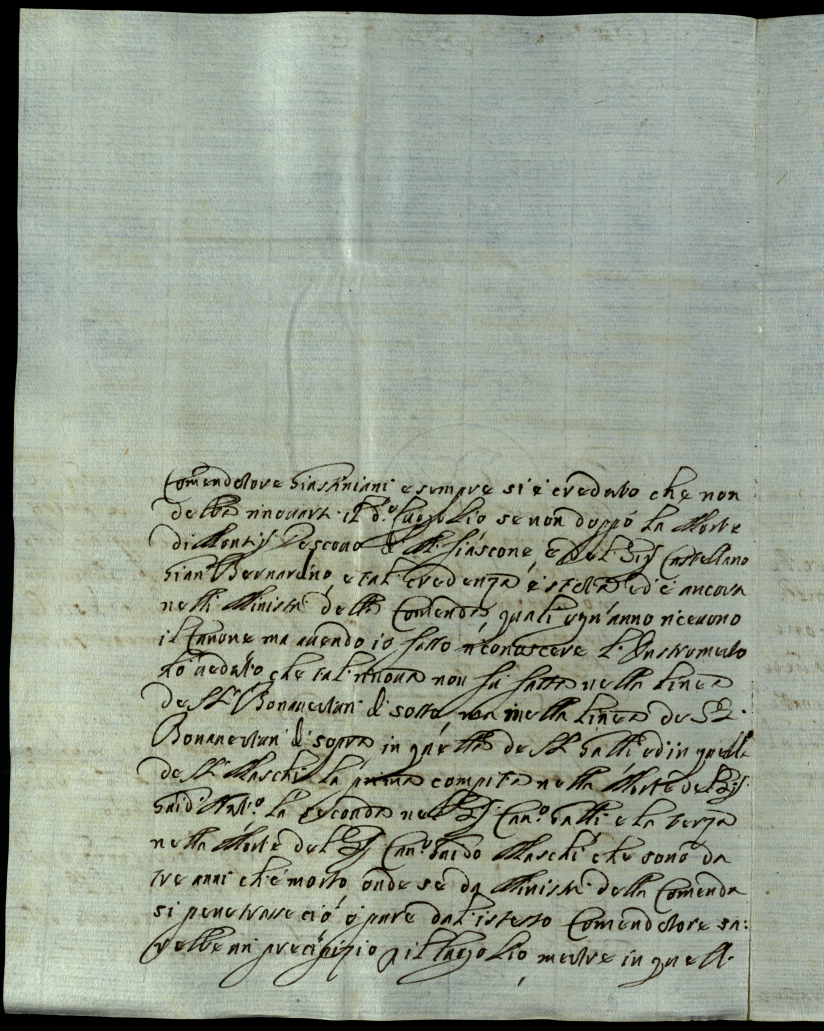 Comendatore Giustiniani e sempre si è creduto che non
debba rinovarsi il d.º luogo Pio se non doppò la Morte
di Monsig.r Vescovo di M. Fiascone, e del Sig.r Castellano
Gian Bernardino, e tal credenza è stata ed è ancora
nelli Ministri della Comenda quali ogn'anno ricevono
il Canone ma avendo io fatto riconoscere l'Instromento
hò veduto che tal rinova non fù fatta nella Linea
de SS.ri Bonaventuri di sotto, ma nella Linea de SS.ri
Bonaventuri di sopra in quella de SS.ri Galli ed in quella
de SS.ri Maschi la prima compita nella Morte del Sig.r
Guid' Ant.º la seconda nel Sig.r Can.º Galli e la terza
nella Morte del Sig.r Can.º Guido Maschi che sono da
tre anni ch'è morto, onde se da Ministri della Comenda
si penetrasse ciò ò pure dal istesso Comendatore sa:
rebbe un precipizio p il luogo Pio mentre in quell